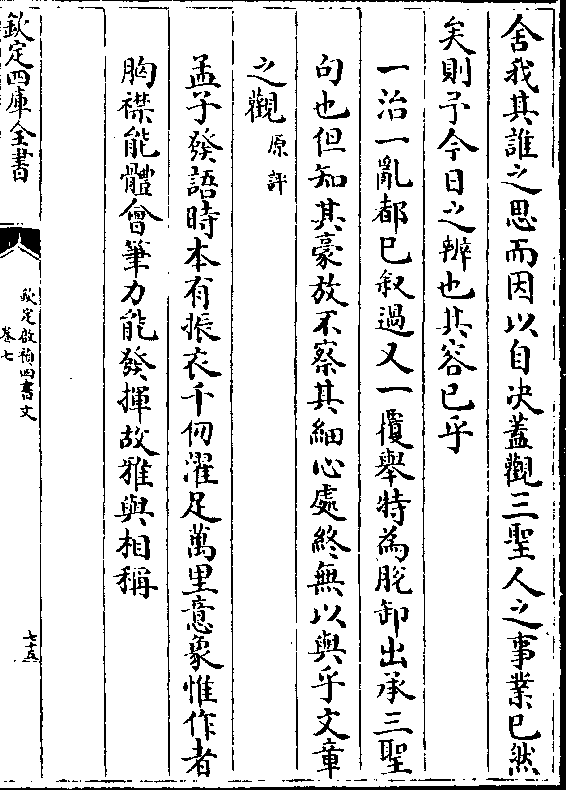 舍我其誰之思而因以自决蓋觀三聖人之事業已然
矣則予今日之辨也其容已乎
一治一亂都已叙過又一攬舉特為脫卸出承三聖
句也但知其豪放不察其細心處終無以與乎文章
之觀原評
孟子發語時本有振衣千仞濯足萬里意象惟作者
胸襟能體會筆力能發揮故雅與相稱
欽定四庫全書
欽定啟禎四書文
卷七
七十五